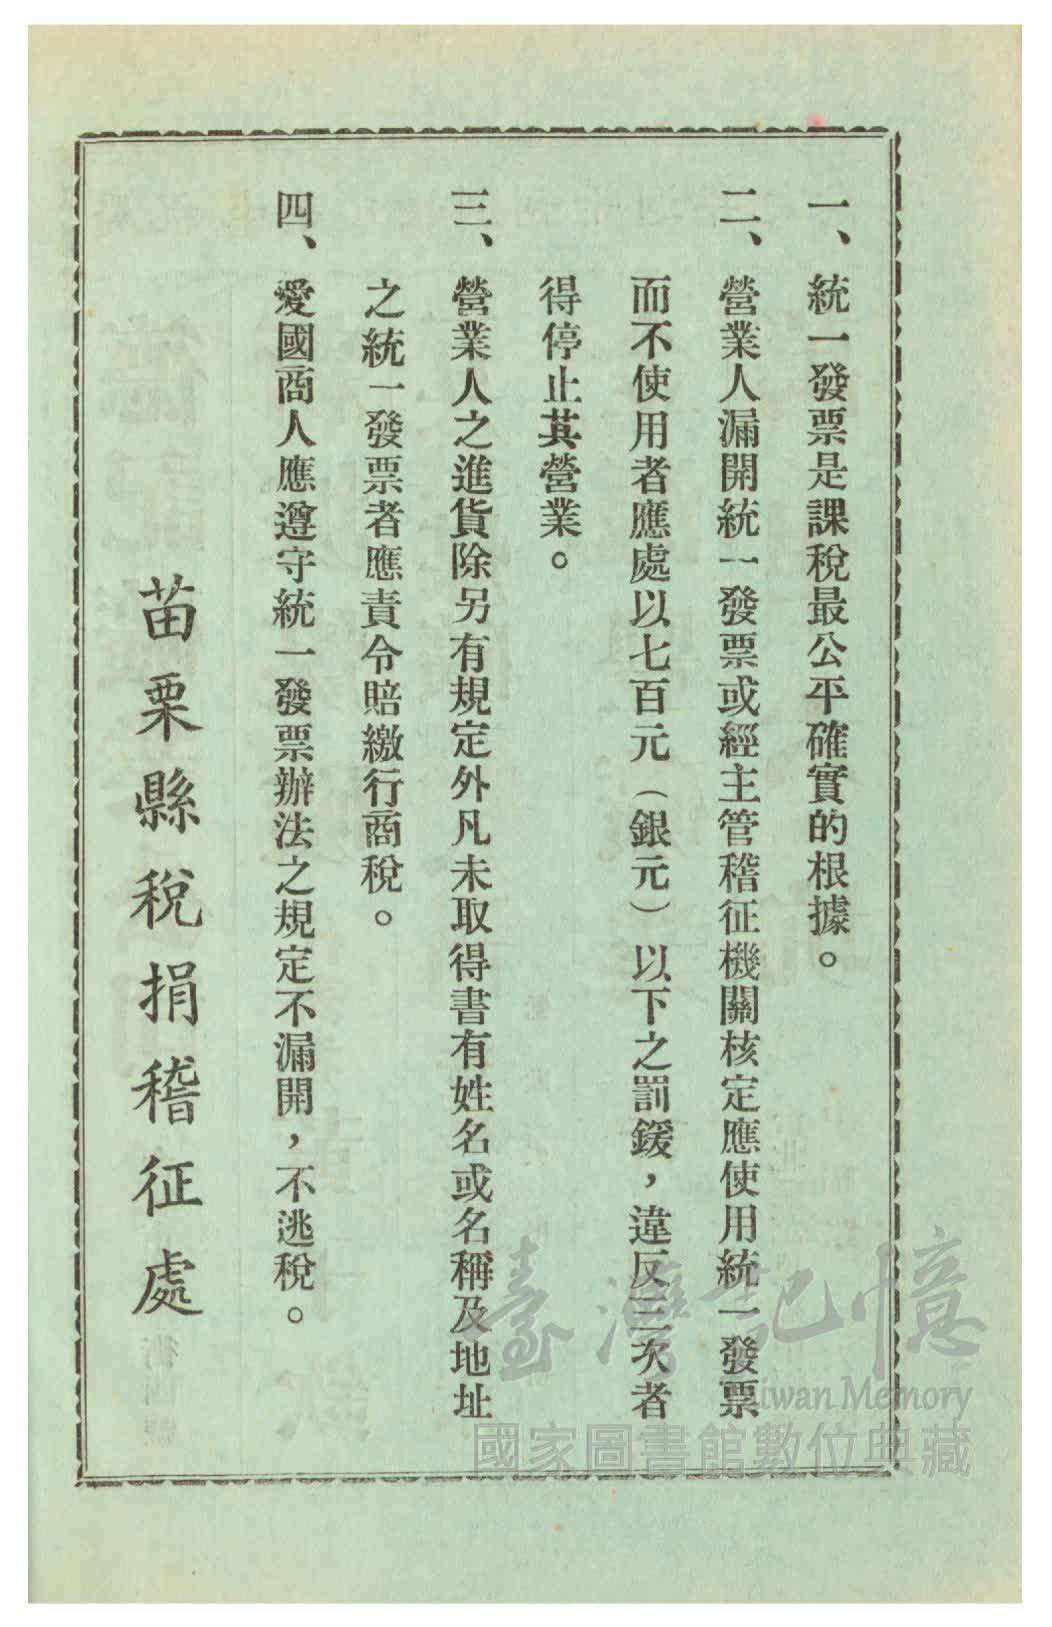 一、統一發票是課稅最公平確實的根據。
二、營業人漏開統一發票或經主管稽征機關核定應使用統一發票
而不使用者應處以七百元（銀元）以下之罰鍰，違反三次者
得停止其營業。
三、營業人之進貨除另有規定外凡未取得書有姓名或名稱及地址
之統一發票者應責令賠繳行商稅。
四、愛國商人應遵守統一發票辦法之規定不漏開，不逃稅。
苗栗縣稅捐稽征處
臺灣記憶
Taiwan Memory
國家圖書館數位典藏